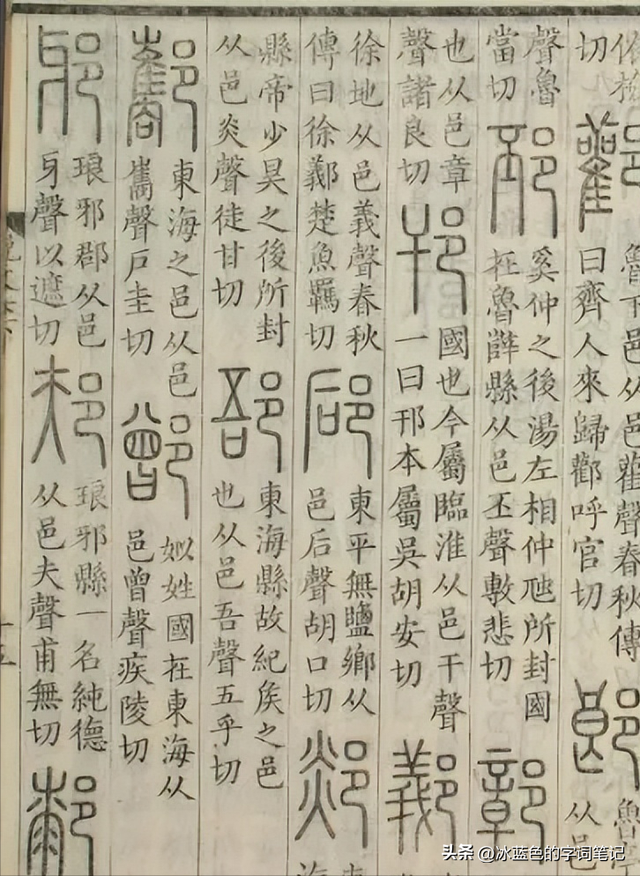 切
酄
魯下邑从邑雚聲春秋傳
曰齊人來歸酄呼官切
郎
魯亭
从邑
聲魯
當切
邳
奚仲之後湯左相仲虺所封國
在魯辥縣从邑丕聲敷悲切
鄣
也从邑章
聲諸良切
邗
國也今屬臨淮从邑干聲
一曰邗本屬吳胡安切
徐地从邑義聲春秋
傳曰徐楚魚羈切
郈
東平無鹽鄉从
邑后聲胡口切
郯
縣帝少昊之後所封
从邑炎聲徒甘切
郚
東海縣故紀矦之邑
也从邑吾聲五乎切
酅
東海之邑从邑
巂聲戶圭切
鄫
姒姓國在東海从
邑曾聲疾陵切
邪
琅邪郡从邑
牙聲以遮切
邞
琅邪縣一名純德
从邑夫聲甫無切
头条 @冰蓝色的字词笔记